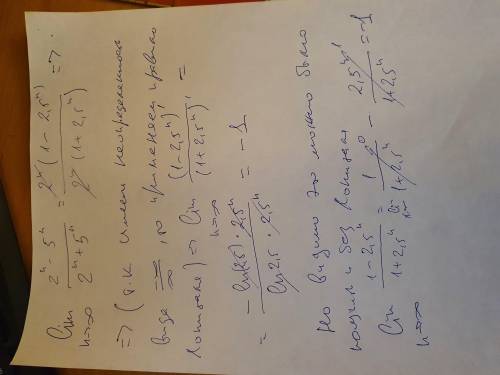 lim n→∞ (2ⁿ - 5ⁿ)/(2ⁿ + 5ⁿ) = 2ⁿ(1 - 2,5ⁿ)/2ⁿ(1 + 2,5ⁿ) =>
=> (т.к имеем неопределенность
виде -∞/∞, то применяем правило
Лопиталя) => lim n→∞ (1-2,5ⁿ)'/(1+2,5ⁿ)' =
= - ln(2,5) · 2,5ⁿ / ln 2,5 · 2,5ⁿ = -1
Но видимо это можно было
и без Лопиталя
lim n→∞ (1-2,5ⁿ)/(1+2,5ⁿ) = 1/(1+2,5ⁿ) - 2,5ⁿ/(1+2,5ⁿ) = -1